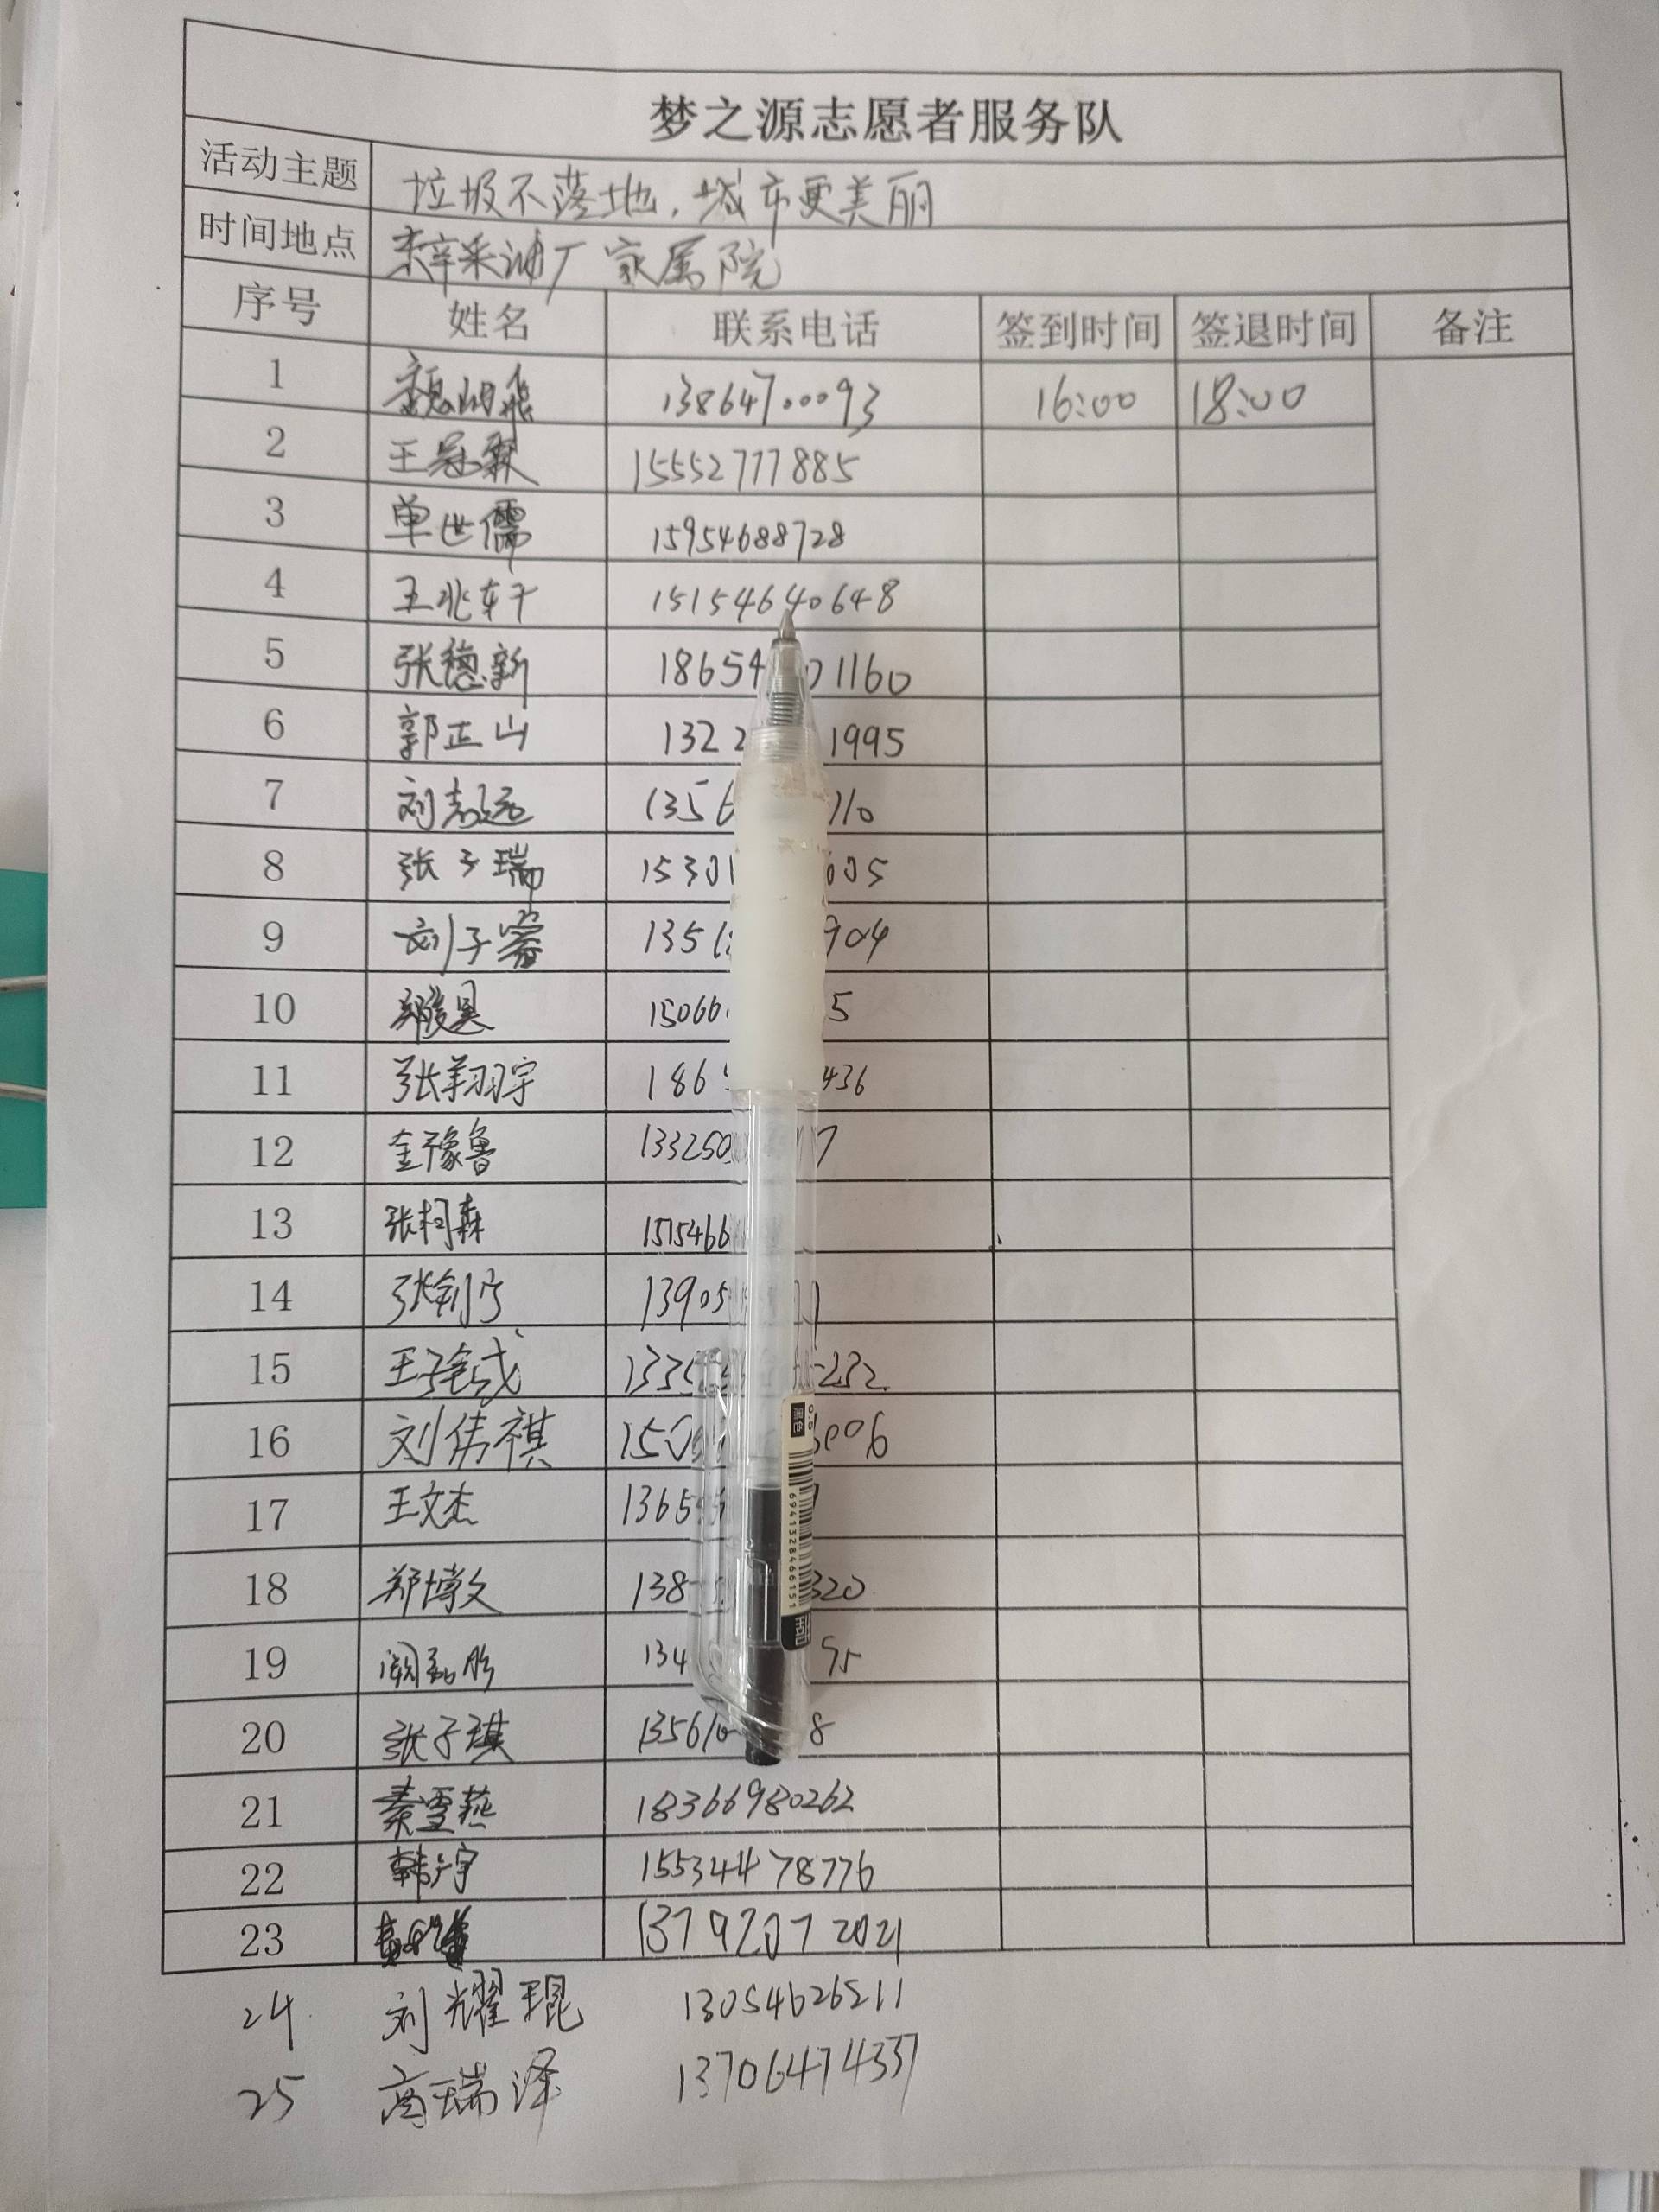 梦之源志愿者服务队
活动主题 垃圾不落地，城市更美丽
时间地点 东辛采油厂家属院
序号 姓名 联系电话 签到时间 签退时间 备注
1 13864700093 16:00 18:00
2 王冠霖 15552777885
3 单世儒 15954688728
4 王兆轩 15154640648
5 张德新 18654 01160
6 郭正山 132 1995
7 刘志远 135 110
8 张子瑞 1530 605
9 刘子 135 904
10 郑俊昊 15066 5
11 张翔宇 186 436
12 金豫鲁 133250 7
13 张柯森 1515466
14 张 宁 13905
15 王 133 232
16 刘伟祺 150 006
17 王文杰 1365
18 郑博文 138 320
19 134 95
20 张子琪 13561 8
21 秦雪燕 18366980262
22 韩 宇 155344 78776
23 13792072021
24 刘耀琨 13054626511
25 高瑞泽 13706474337
0.5
黑色
6941328466151